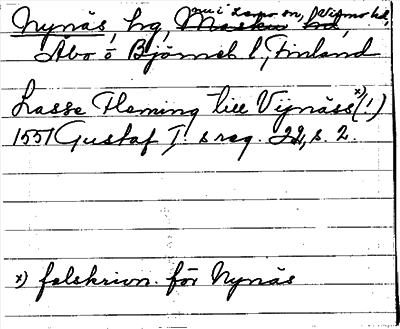 Nynäs, hg, nu i Lemo sn, Vemo hd,
Åbo o Björneb l, Finland
Lasse Fleming till Vijnäss x) (!)
1551 Gustaf I:s reg. 22, s. 2.
x) felskrivn. för Nynäs